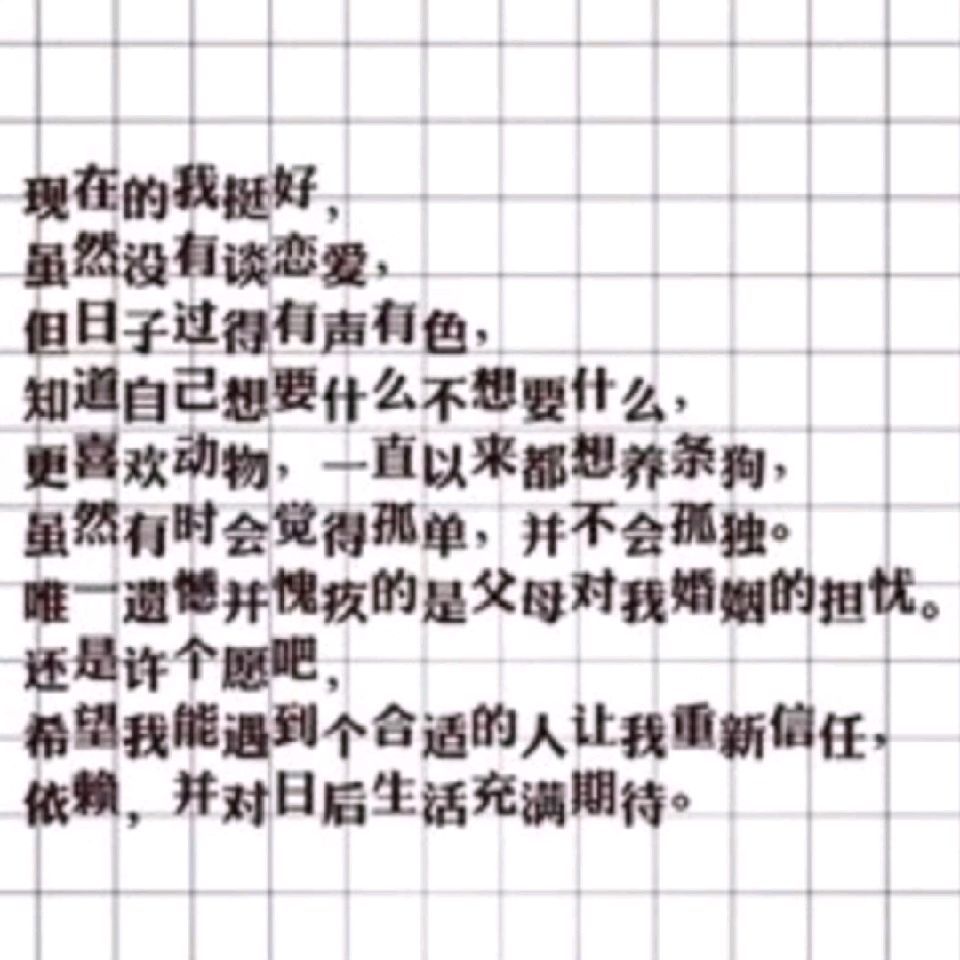 现在的我挺好，
虽然没有谈恋爱，
但日子过得有声有色，
知道自己想要什么不想要什么，
更喜欢动物，一直以来都想养条狗，
虽然有时会觉得孤单，并不会孤独。
唯一遗憾并愧疚的是父母对我婚姻的担忧。
还是许个愿吧，
希望我能遇到个合适的人让我重新信任，
依赖，并对日后生活充满期待。